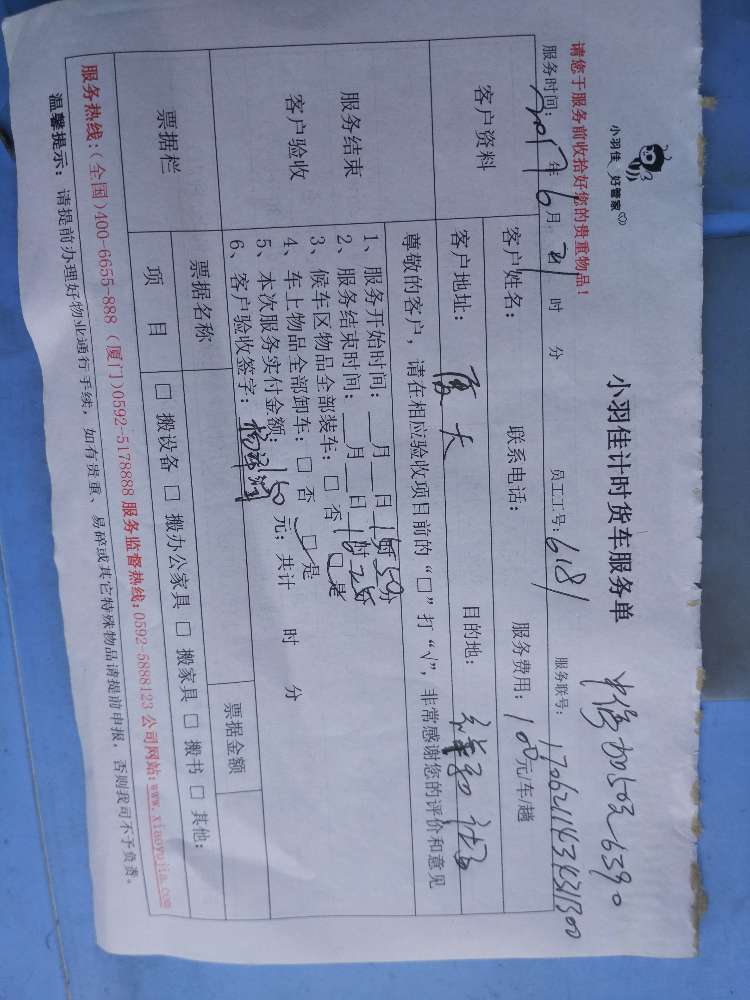 小羽佳 好管家
小羽佳计时货车服务单
请您于服务前收拾好您的贵重物品!
服务时间: 2017年6月21时 分 员工工号: 6181 服务联号: 17062114343431300
客户资料
客户姓名: 联系电话: 服务费用: 100元/车/趟
客户地址: 厦大 目的地:
服务结束
客户验收
尊敬的客户,请在相应验收项目前的“□”打“√”,非常感谢您的评价和意见
1、服务开始时间:__月__日15时50分
2、服务结束时间:__月__日16时25分
3、候车区物品全部装车:□ 否 □ 是
4、车上物品全部卸车:□ 否 □ 是
5、本次服务实付金额: 150元; 共计 时 分
6、客户验收签字:
票据栏
票据名称 票据金额
项 目 □ 搬设备 □ 搬办公家具 □ 搬家具 □ 搬书 □ 其他:
服务热线:(全国)400-6655-888 (厦门)0592-5178888 服务监督热线:0592-5888123 公司网站:www.xiaoyujia.com
温馨提示: 请提前办理好物业通行手续,如有贵重、易碎或其它特殊物品请提前申报,否则我司不予负责。